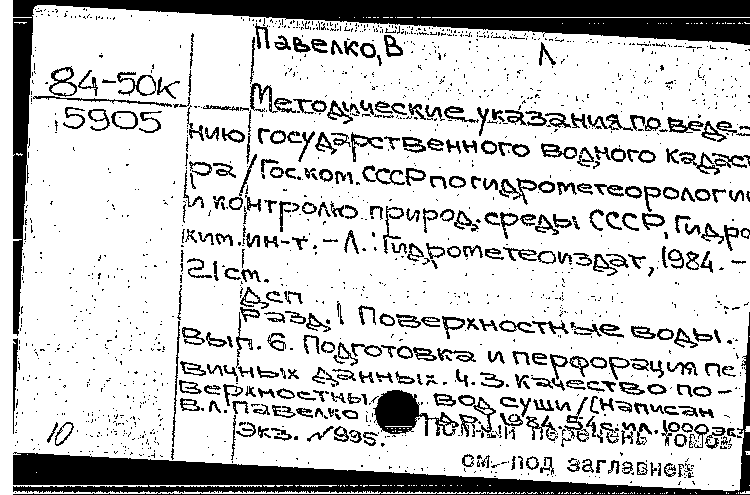 Павелко, В
Л
84-50к
5905
Методические указания по веде-
нию государственного водного кадаст
ра / Гос.ком. СССР по гидрометеорологии
и контролю природ. среды СССР, Гидро
хим. ин-т. - Л. : Гидрометеоиздат, 1984. -
21 см.
Дсп
Разд. 1 Поверхностные воды.
Вып. 6. Подготовка и перфорация пе
вичных данных. Ч. 3. Качество по-
верхностны вод суши / [Написан
В.Л. Павелко 1984. 54с. ил. 1000 экз
Экз. №995. Полный перечень томов
10
см. под заглавием